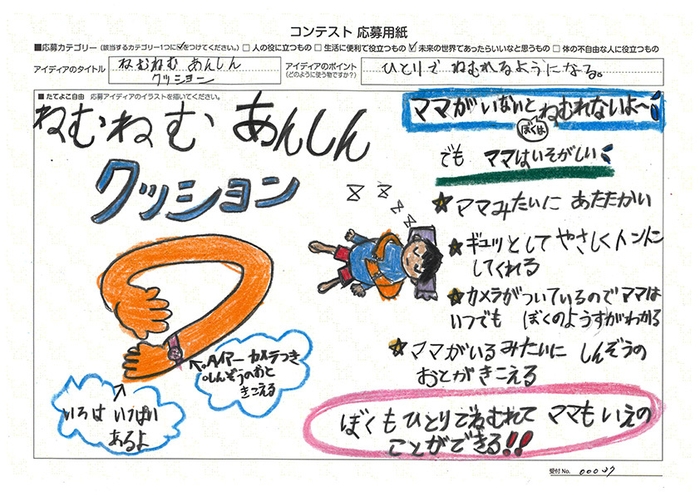 コンテスト 応募用紙
■応募カテゴリー（該当するカテゴリー1つに✓をつけてください。） □人の役に立つもの □生活に便利で役立つもの ☑未来の世界であったらいいなと思うもの □体の不自由な人に役立つもの
アイディアのタイトル
ねむねむ あんしん
クッション
アイディアのポイント
（どのように使う物ですか？）
ひとりで ねむれるようになる。
■たてよこ自由 応募アイディアのイラストを描いてください。
ねむねむ あんしん
クッション
ママがいないと ねむれないよ〜
ぼくは
でも ママはいそがしい
☆ママみたいに あたたかい
☆ギュッとして やさしくトントン
してくれる
☆カメラがついているのでママは
いつでも ぼくのようすがわかる
☆ママがいるみたいに しんぞうの
おとがきこえる
カメラつき
しんぞうのおと
きこえる
いろは いっぱい
あるよ
ぼくもひとりでねむれて ママもいえの
ことができる!!
受付No. 00037